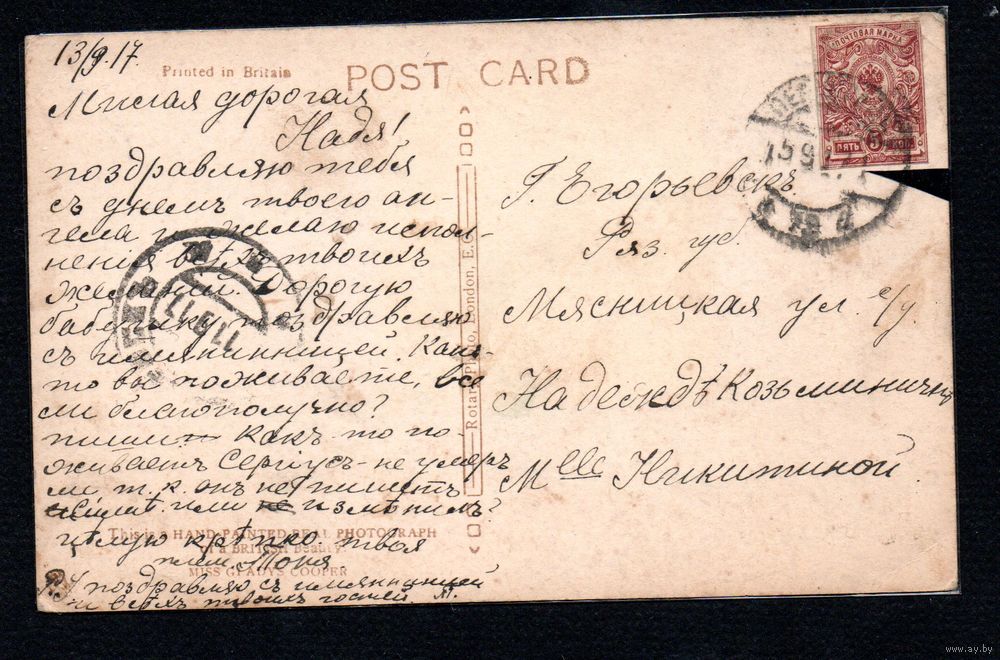 13/9.17.
Printed in Britain
POST CARD
Милая дорогая
Надя!
поздравляю тебя
съ днемъ твоего ан-
гела и желаю испол-
ненія всѣхъ твоихъ
желаній. Дорогую
бабушку поздравляю
съ имянинницей. Какъ
то вы поживаете, все
ли благополучно?
пиши Какъ то по
живаетъ Сергіусъ - не умеръ
ли т. к. онъ не пишетъ
или не измѣнилъ?
цѣлую крѣпко. твоя
Моня
поздравляю съ имянинницей
и всѣхъ твоихъ гостей. М.
This is a HAND-PAINTED REAL PHOTOGRAPH
of a BRITISH Beauty
MISS GLADYS COOPER
Rotary Photo, London, E.C.
ПОЧТОВАЯ МАРКА
ПЯТЬ 5 КОП
15 9 17
11 9 17
Г. Егорьевскъ
Ряз. губ.
Мясницкая ул. с/д.
Надеждѣ Козьминичнѣ
Mlle Никитиной
www.ay.by